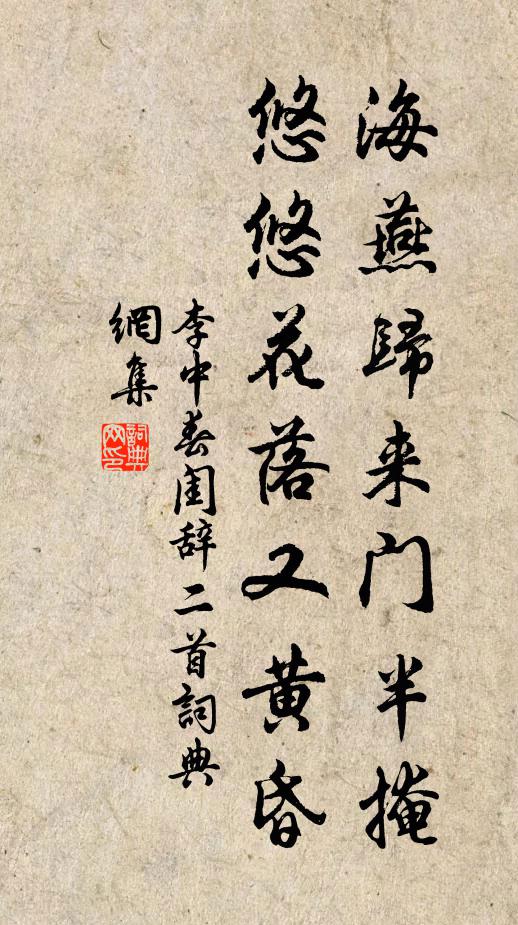 海燕歸来門半掩
悠悠花落又黄昏
李中春闺辞二首詞典
網集
詞典
网印